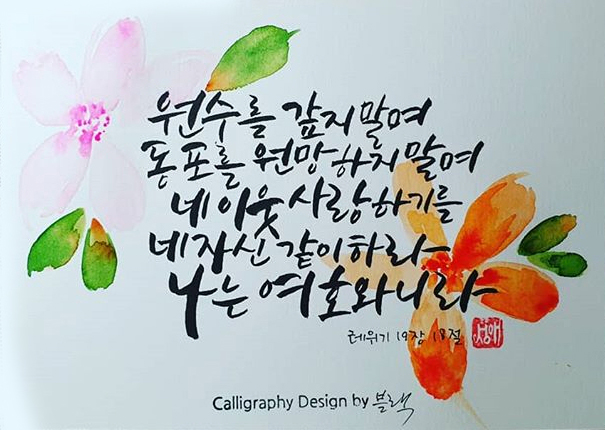 원수를 갚지말며
동포를 원망하지말며
네 이웃 사랑하기를
네 자신 같이하라
나는 여호와니라
레위기 19장 18절
성애
Calligraphy Design by 블랙